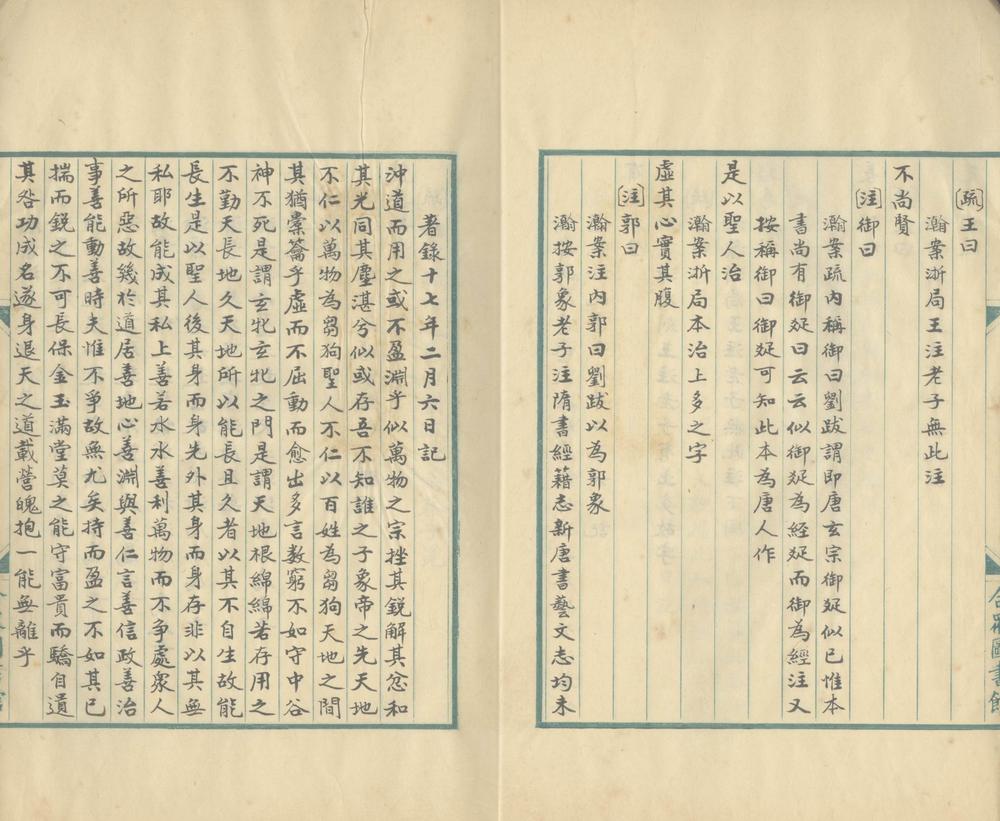 合眾圖書館
疏王曰
瀚案浙局王注老子無此注
不尚賢
注御曰
瀚案疏內稱御曰劉跋謂即唐玄宗御疏似已惟本
書尚有御疏曰云云似御疏為經疏而御為經注又
按稱御曰御疏可知此本為唐人作
是以聖人治
瀚案浙局本治上多之字
虛其心實其腹
注郭曰
瀚案注內郭曰劉跋以為郭象
瀚按郭象老子注隋書經籍志新唐書藝文志均未
著錄十七年二月六日記
沖道而用之或不盈淵乎似萬物之宗挫其銳解其忿和
其光同其塵湛兮似或存吾不知誰之子象帝之先天地
不仁以萬物為芻狗聖人不仁以百姓為芻狗天地之間
其猶橐籥乎虛而不屈動而愈出多言數窮不如守中谷
神不死是謂玄牝玄牝之門是謂天地根綿綿若存用之
不勤天長地久天地所以能長且久者以其不自生故能
長生是以聖人後其身而身先外其身而身存非以其無
私耶故能成其私上善若水水善利萬物而不爭處眾人
之所惡故幾於道居善地心善淵與善仁言善信政善治
事善能動善時夫惟不爭故無尤矣持而盈之不如其已
揣而銳之不可長保金玉滿堂莫之能守富貴而驕自遺
其咎功成名遂身退天之道載營魄抱一能無離乎